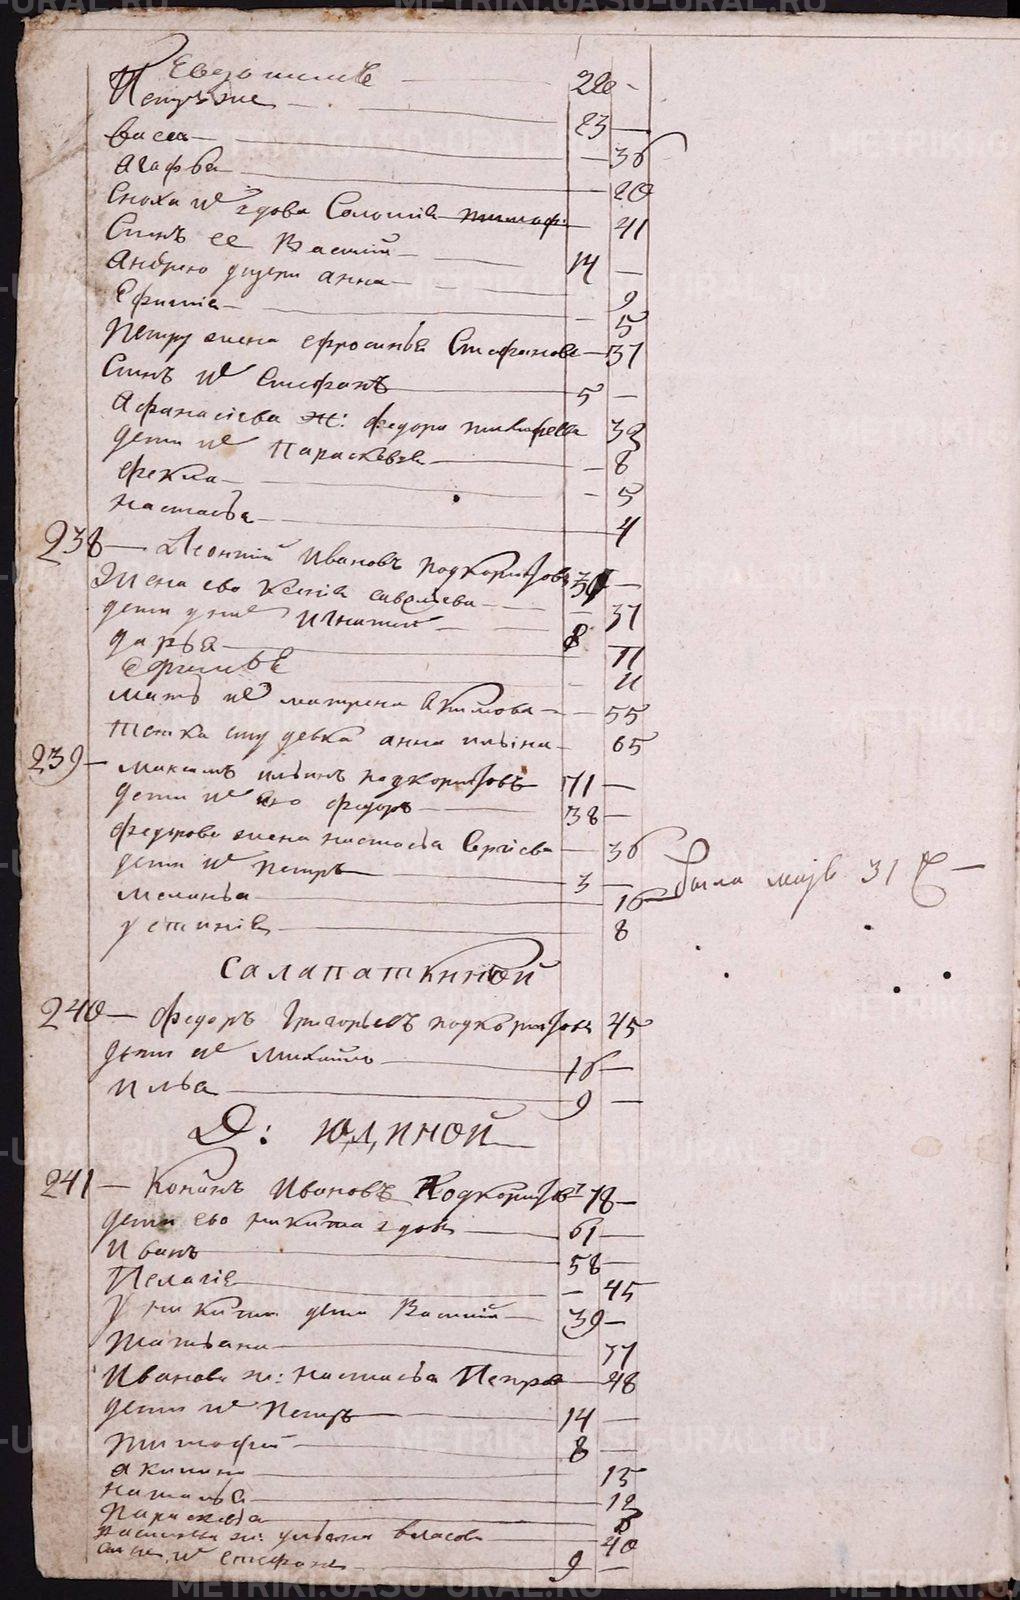 Евдокимъ 22 -
Петръ же 23 —
васса — 36
агафья — 20
Сноха их вдова Соломія 41
Сынъ ее Василій — 14 —
Андрею дщери анна — 9
Ефимія — 5
Петру жена ефросинья Стефанова — 37
Сынъ их Стефанъ — 5 —
Афанасіева ж: федора тимофеева 32
дети их Параскевья — 8
фекла — 5
настасья — 4
238 — Леонтий Ивановъ подкорытовъ —
Жена ево Ксенія савельева — 37
дети у них Игнатий — 8
дарья — 11
Ефимья — 11
мать их матрена Акимова — 55
тетка ему девка анна ильина — 65
239 — максимъ ильинъ подкорытовъ 71 —
дети их федоръ — 38 —
федорова жена настасья Сергіева — 36
дети их Петръ — 3 —
меланья — 16 — была маія 31
устинія — 8
Салапаткиной
240 — федоръ Григорьевъ подкорытовъ 45
дети их михайло — 16 —
илья — 9 —
Д: Юдиной
241 — Кононъ Ивановъ Подкорытовъ 78 —
дети ево никита вдовъ — 61 —
Иванъ — 58 —
Пелагія — 45
У никиты дети Василій — 39 —
татьяна — 37
Иванова ж: настасья Петрова — 48
дети их Петръ — 14 —
тимофей — 8 —
акилина — 15
наталья — 12
Параскевья
васильева ж: ульяна власова 40
сынъ их стефанъ 9 —
METRIKI.GASU-URAL.RU